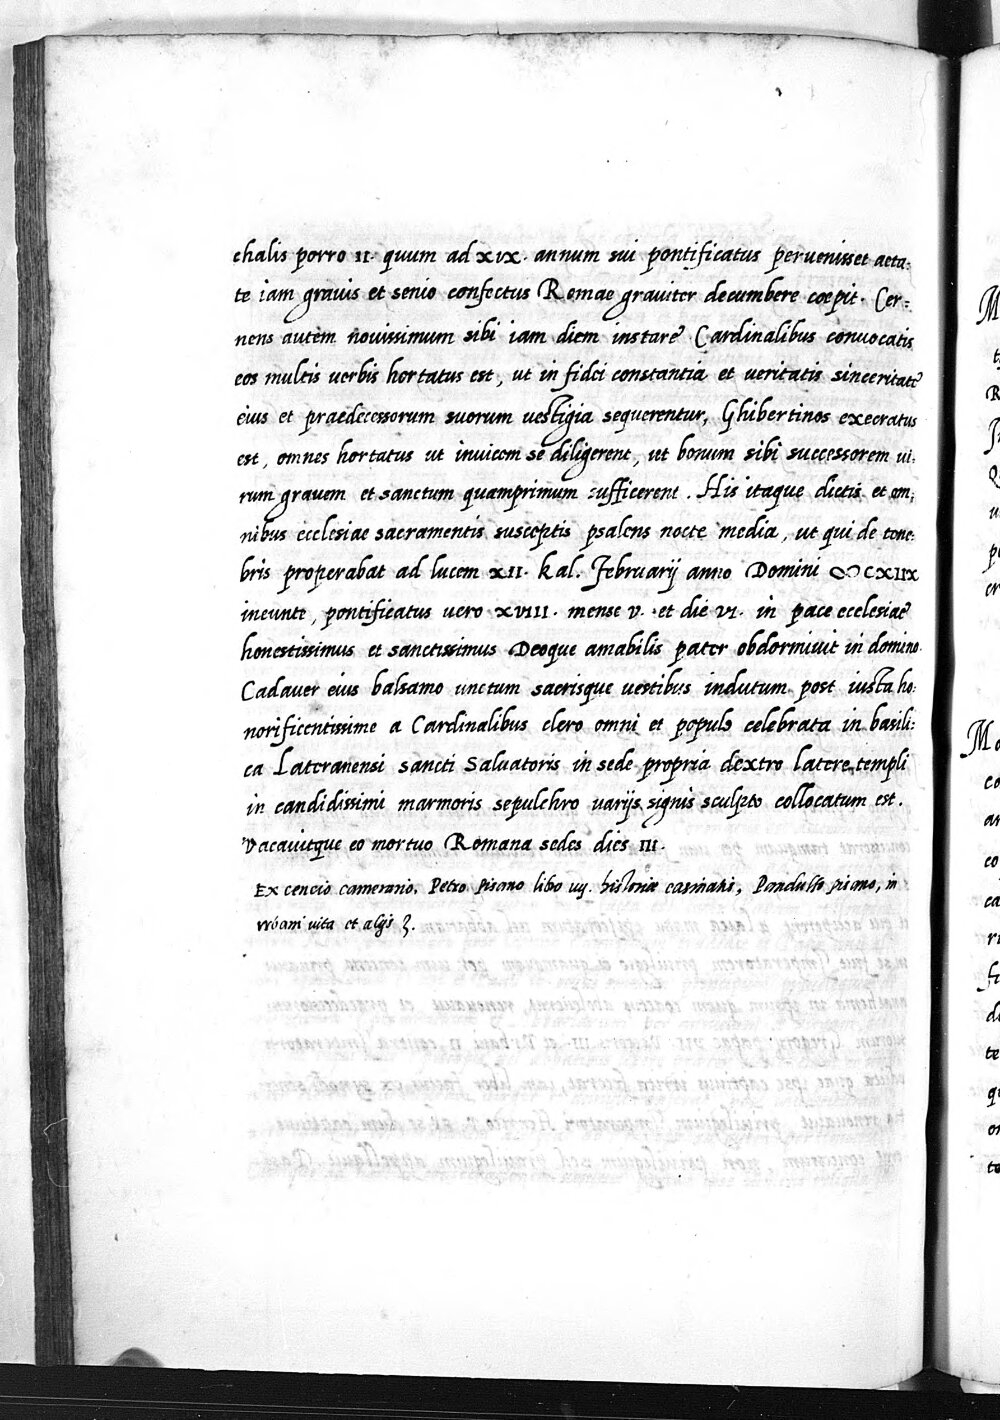 chalis porro II. quum ad XIX. annum sui pontificatus peruenisset aeta:
te iam grauis et senio confectus Romae grauiter decumbere coepit. Cer-
nens autem nouissimum sibi iam diem instare Cardinalibus conuocatis
eos multis uerbis hortatus est, ut in fidei constantia et ueritatis sinceritate
eius et praedecessorum suorum uestigia sequerentur, Ghibertinos execratus
est, omnes hortatus ut inuicem se diligerent, ut bonum sibi successorem ui:
rum grauem et sanctum quamprimum sufficerent. His itaque dictis et om:
nibus ecclesiae sacramentis susceptis psalens nocte media, ut qui de tene:
bris properabat ad lucem XII. kal. Februarij anno Domini ∞CXIIX
ineunte, pontificatus uero XVIII. mense V. et die VI. in pace ecclesiae
honestissimus et sanctissimus Deoque amabilis pater obdormiuit in domino.
Cadauer eius balsamo unctum sacrisque uestibus indutum post iusta ho:
norificentissime a Cardinalibus clero omni et populo celebrata in basili:
ca Lateranensi sancti Saluatoris in sede propria dextro latere templi
in candidissimi marmoris sepulchro uarijs signis sculpto collocatum est.
Vacauitque eo mortuo Romana sedes dies III.
Ex cencio camerario, Petro pisano libo iiij. historiae casinatis, Pandulfo pisano, in
vrbani vita et alijs
M
M